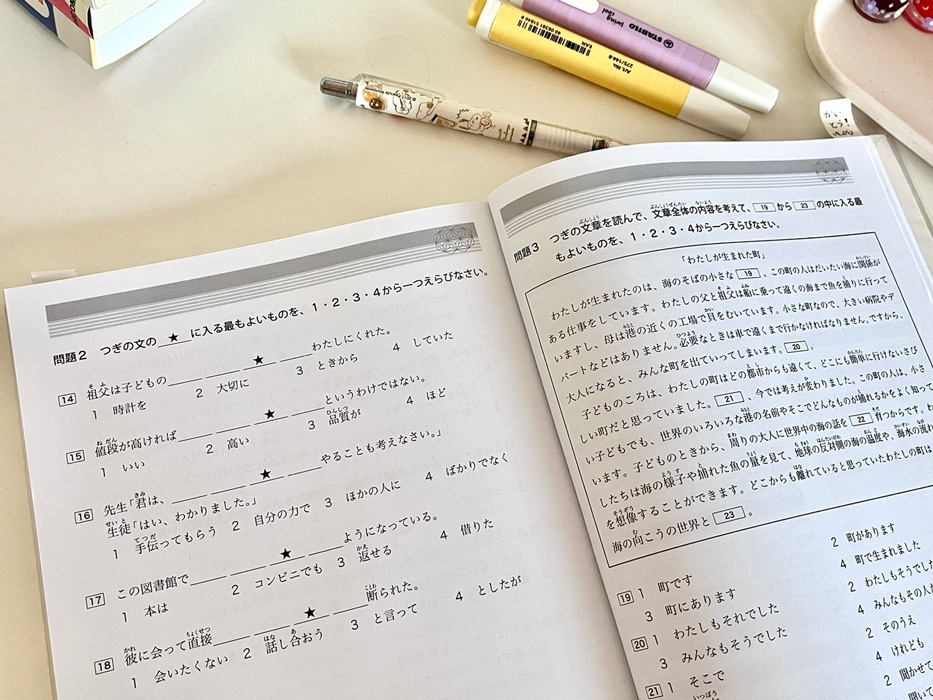 STABILO swing cool
Art.-No. 275/144-8
EAN
かい
とう！
問題2 つぎの文の ★ に入る最もよいものを、1・2・3・4から一つえらびなさい。
14 祖父は子どもの ★ わたしにくれた。
1 時計を 2 大切に 3 ときから 4 していた
15 値段が高ければ ★ というわけではない。
1 いい 2 高い 3 品質が 4 ほど
16 先生「君は、 ★ やることも考えなさい。」
生徒「はい、わかりました。」
1 手伝ってもらう 2 自分の力で 3 ほかの人に 4 ばかりでなく
17 この図書館で ★ ようになっている。
1 本は 2 コンビニでも 3 返せる 4 借りた
18 彼に会って直接 ★ 断られた。
1 会いたくない 2 話し合おう 3 と言って 4 としたが
問題3 つぎの文章を読んで、文章全体の内容を考えて、 19 から 23 の中に入る最
もよいものを、1・2・3・4から一つえらびなさい。
「わたしが生まれた町」
わたしが生まれたのは、海のそばの小さな 19 。この町の人はだいたい海に関係が
ある仕事をしています。わたしの父と祖父は船に乗って遠くの海まで魚を捕りに行って
いますし、母は港の近くの工場で貝をむいています。小さな町なので、大きい病院やデ
パートなどはありません。必要なときは車で遠くまで行かなければなりません。ですから、
大人になると、みんな町を出ていってしまいます。 20 。
子どものころは、わたしの町はどの都市からも遠くて、どこにも簡単に行けないさび
しい町だと思っていました。 21 、今では考えが変わりました。この町の人は、小さ
い子どもでも、世界のいろいろな港の名前やそこでどんなものが捕れるかをよく知って
います。子どものときから、周りの大人に世界中の海の話を 22 育つからです。わた
したちは海の様子や捕れた魚の量を見て、地球の反対側の海の温度や、海水の流れ
を想像することができます。どこからも離れていると思っていたわたしの町は
海の向こうの世界と 23 。
19 1 町です 2 町があります
3 町にあります 4 町で生まれました
20 1 わたしもそれでした 2 わたしもそうでした
3 みんなもそうでした 4 みんなもその人
21 1 そこで 2 そのうえ
4 けれども
2 聞かせて